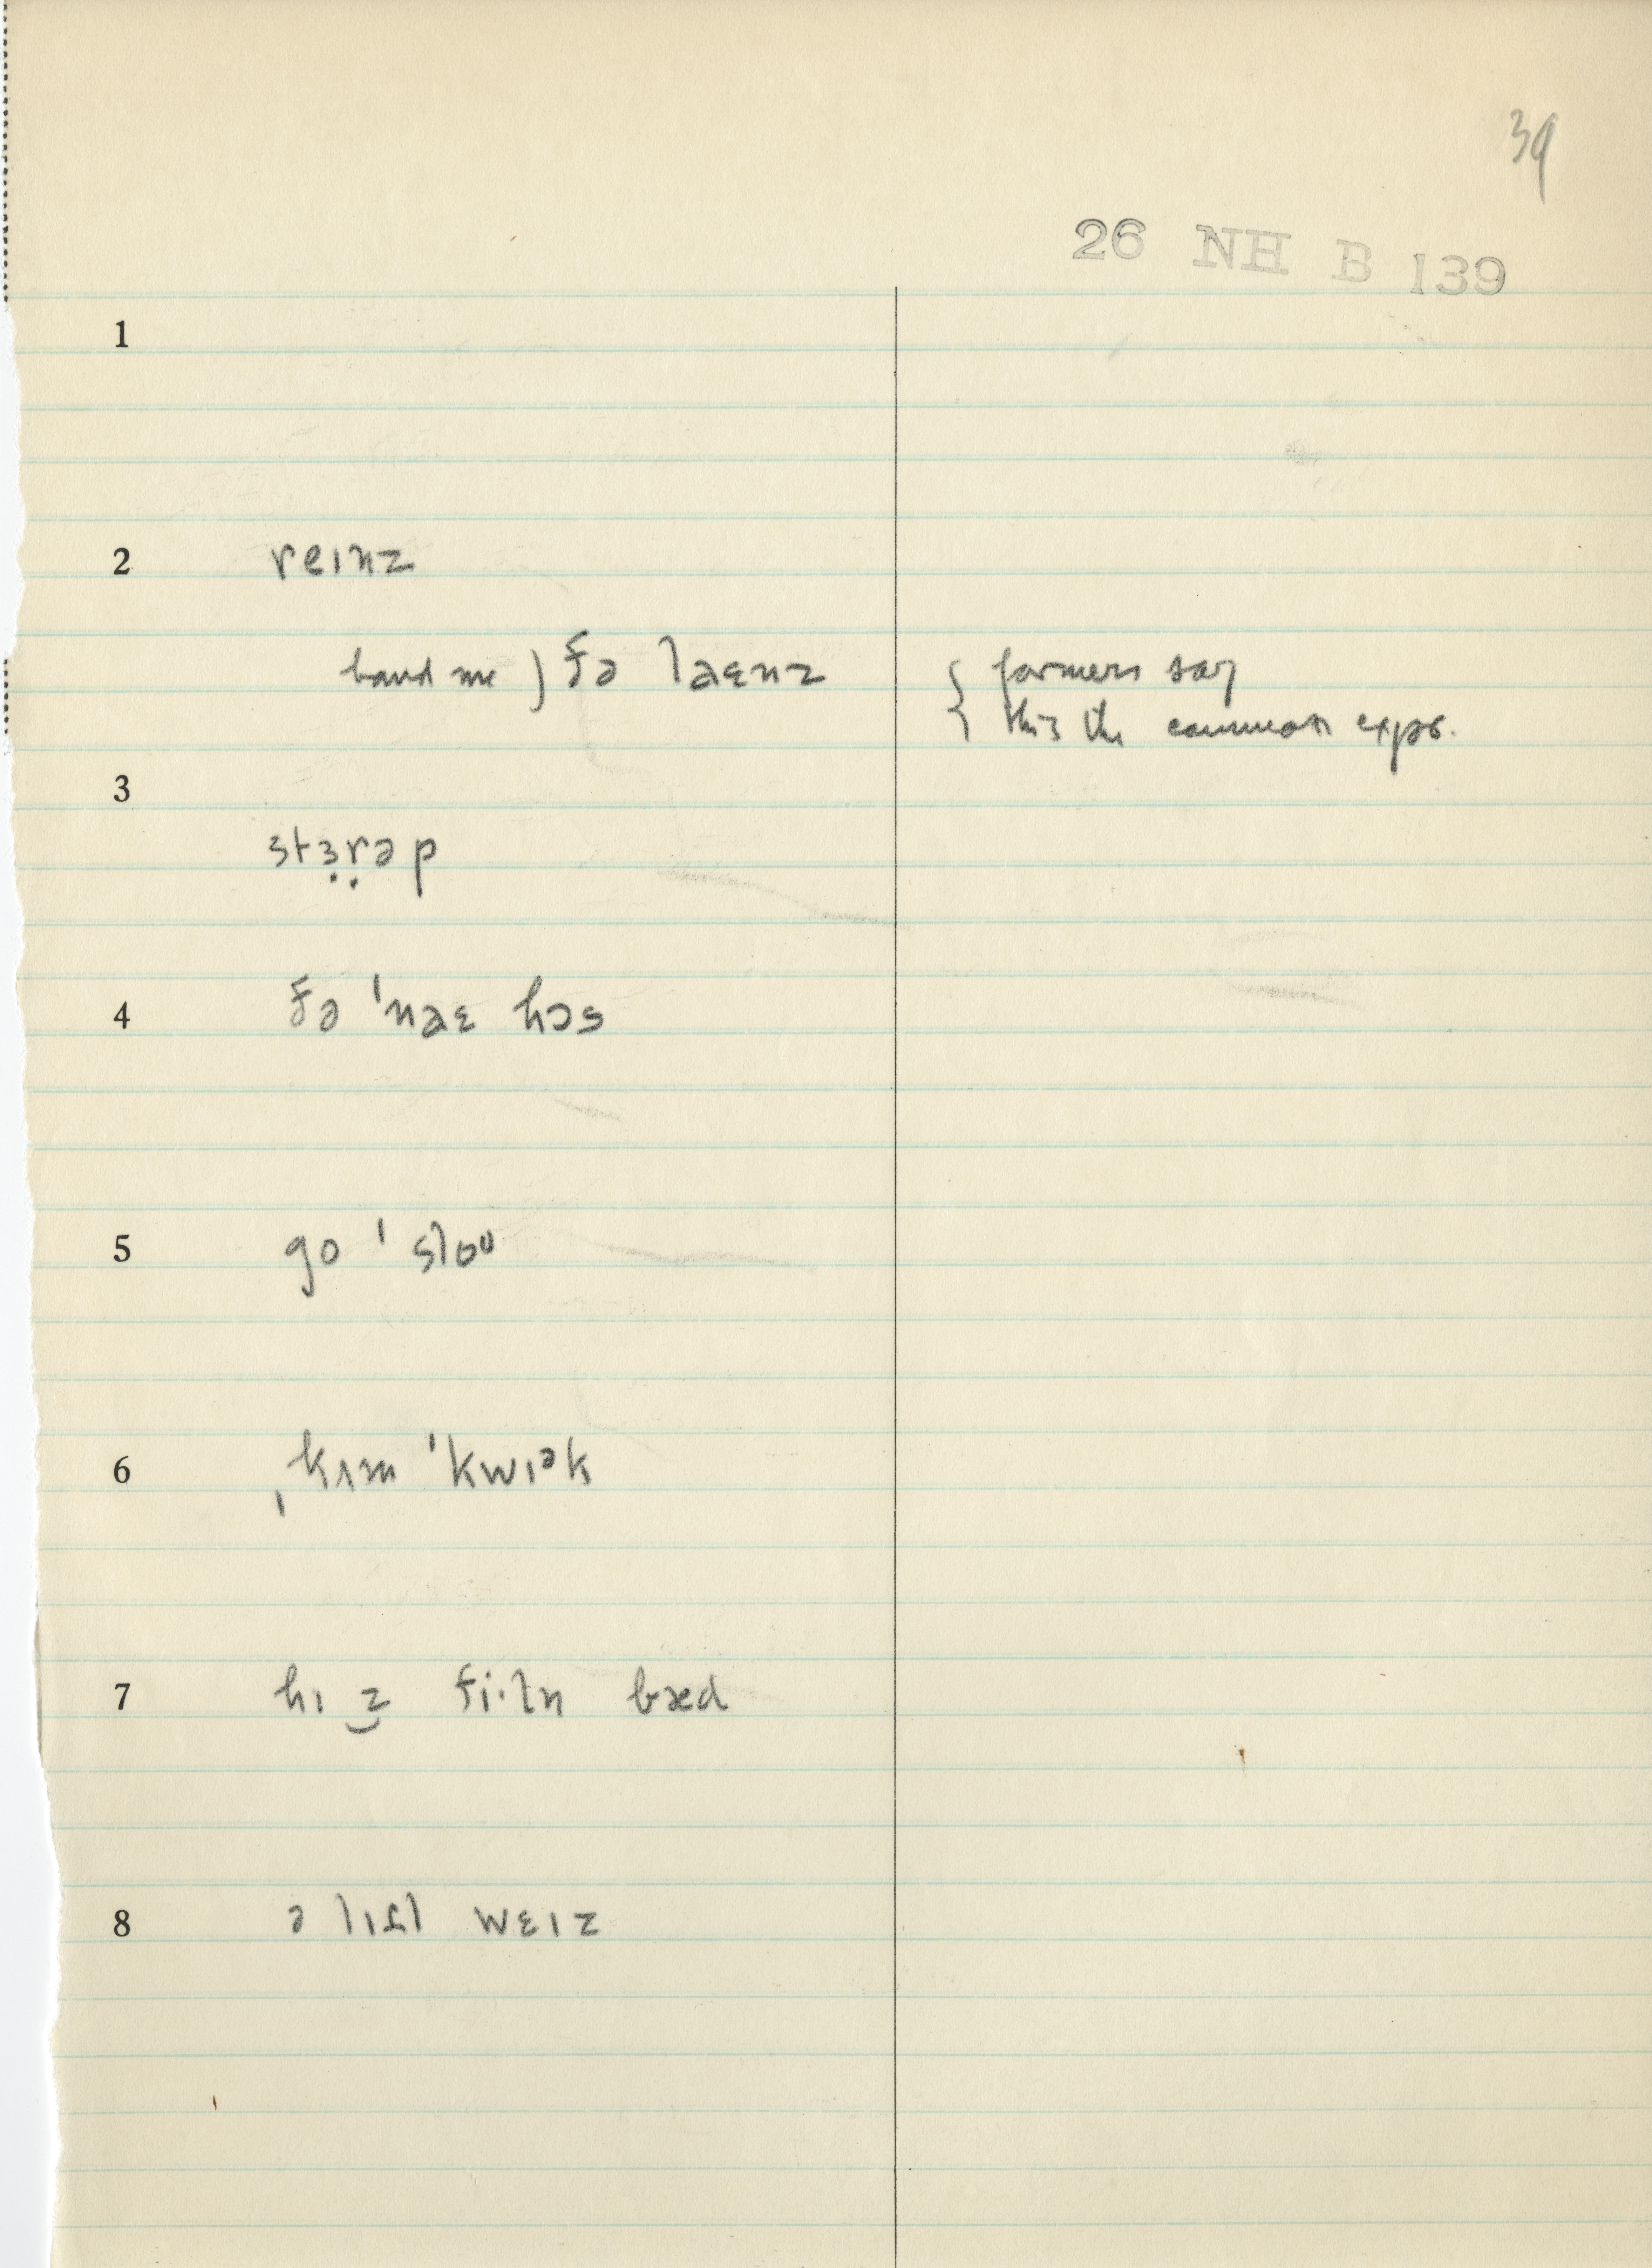 39
26 NH B 139
1
2 reɪnz
hand me ) ðə laɛnz { farmers say
{ this the common expr.
3
stɜ̣ṛəp
4 ðə ˈnaɛ hɔs
5 go ˈsloʊ
6 ˌkʌm ˈkwɪᵊk
7 hɪ z̮ fi·ln bæd
8 ə lɪt̬l wɛɪz